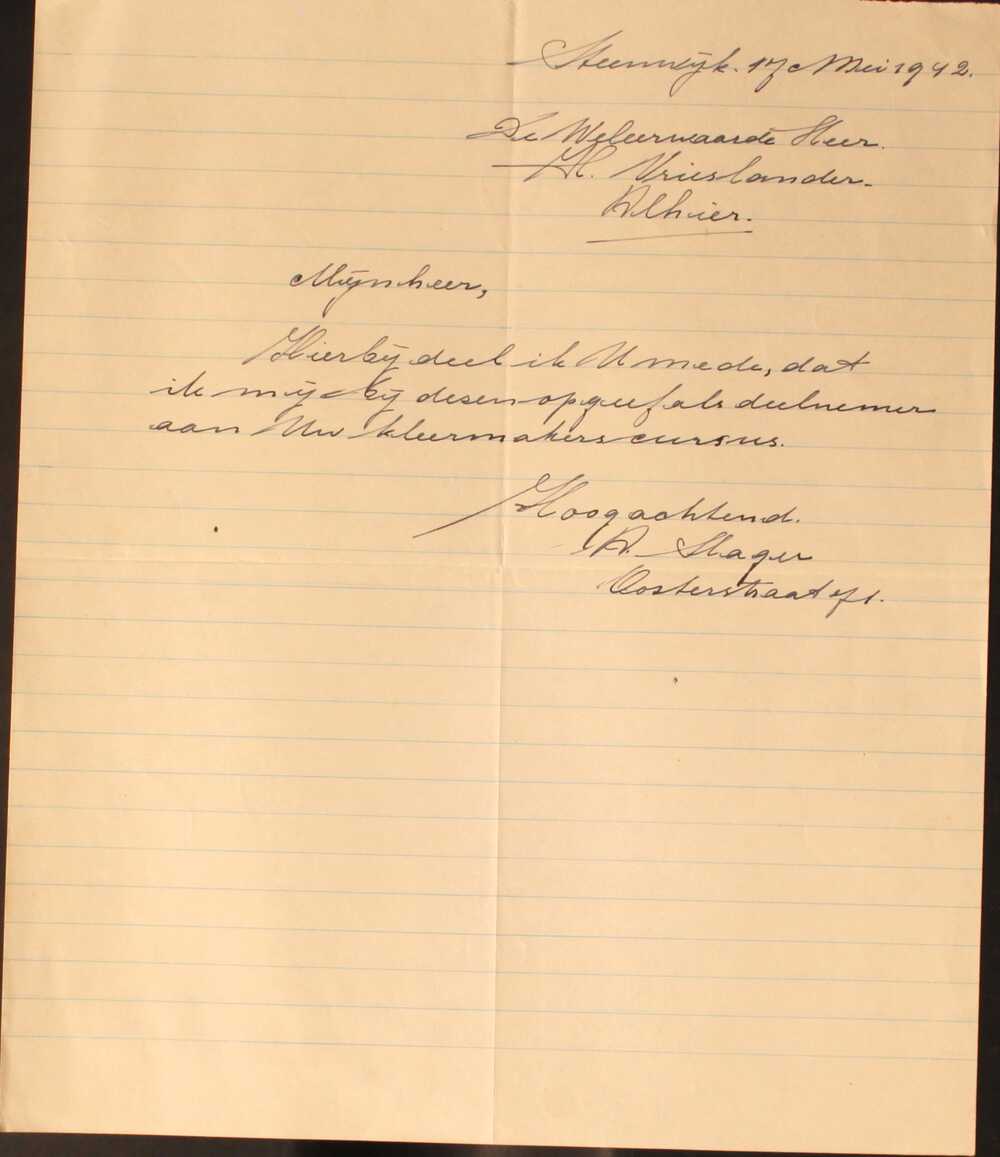 Steenwijk. 17 Mei 1942.
De Weleerwaarde Heer.
H. Vrieslander.
Alhier.
Mijnheer,
Hierbij deel ik U mede, dat
ik mij bij desen opgeef als deelnemer
aan Uw kleermakerscursus.
Hoogachtend.
A. Slager
Oosterstraat